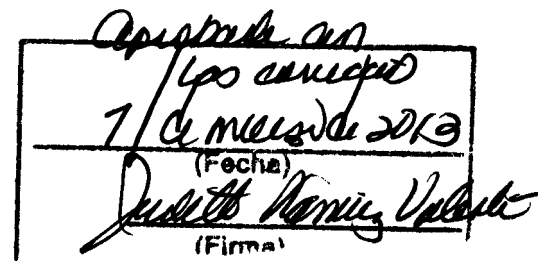 aprobado con
las correcc
7 de marzo de 2013
(Fecha)
Judith Ramírez Valentín
(Firma)